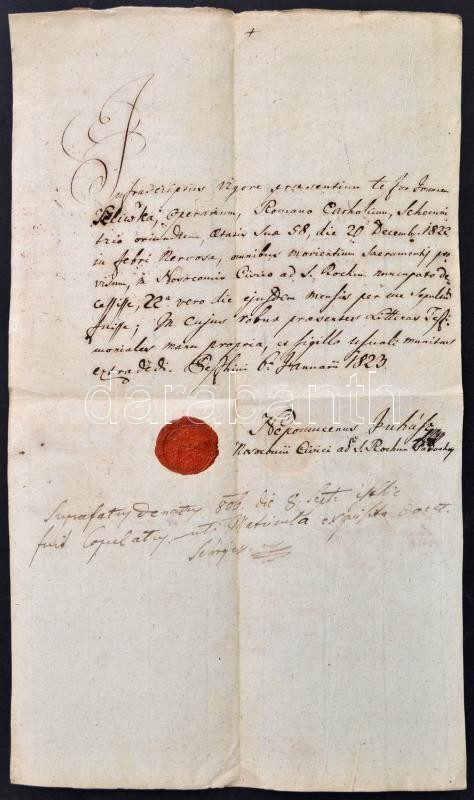 +
Infrascriptus vigore praesentium testor Joannem
Szliwka, operarium, Romano Catholicum, Schemni
trio oriundum, aetatis suae 58, die 20 Decemb. 1822
in febri nervosa, omnibus morientium Sacramentis pro
visum, in Nosocomio Civico ad S. Rochum nuncupato de
cessisse, 22a vero die ejusdem mensis per me sepultum
fuisse; In cujus robur praesentes Litteras Testi
moniales manu propria, et sigillo usuali munitas
extradedi. Pesthini 6a Januarii 1823.
Nepomucenus Juhász
Nosocomii Civici ad S. Rochum Parochus
darabanth
Suprafatus denatus die 8 Sept.
fuit Copulatus uti Matricula docet.